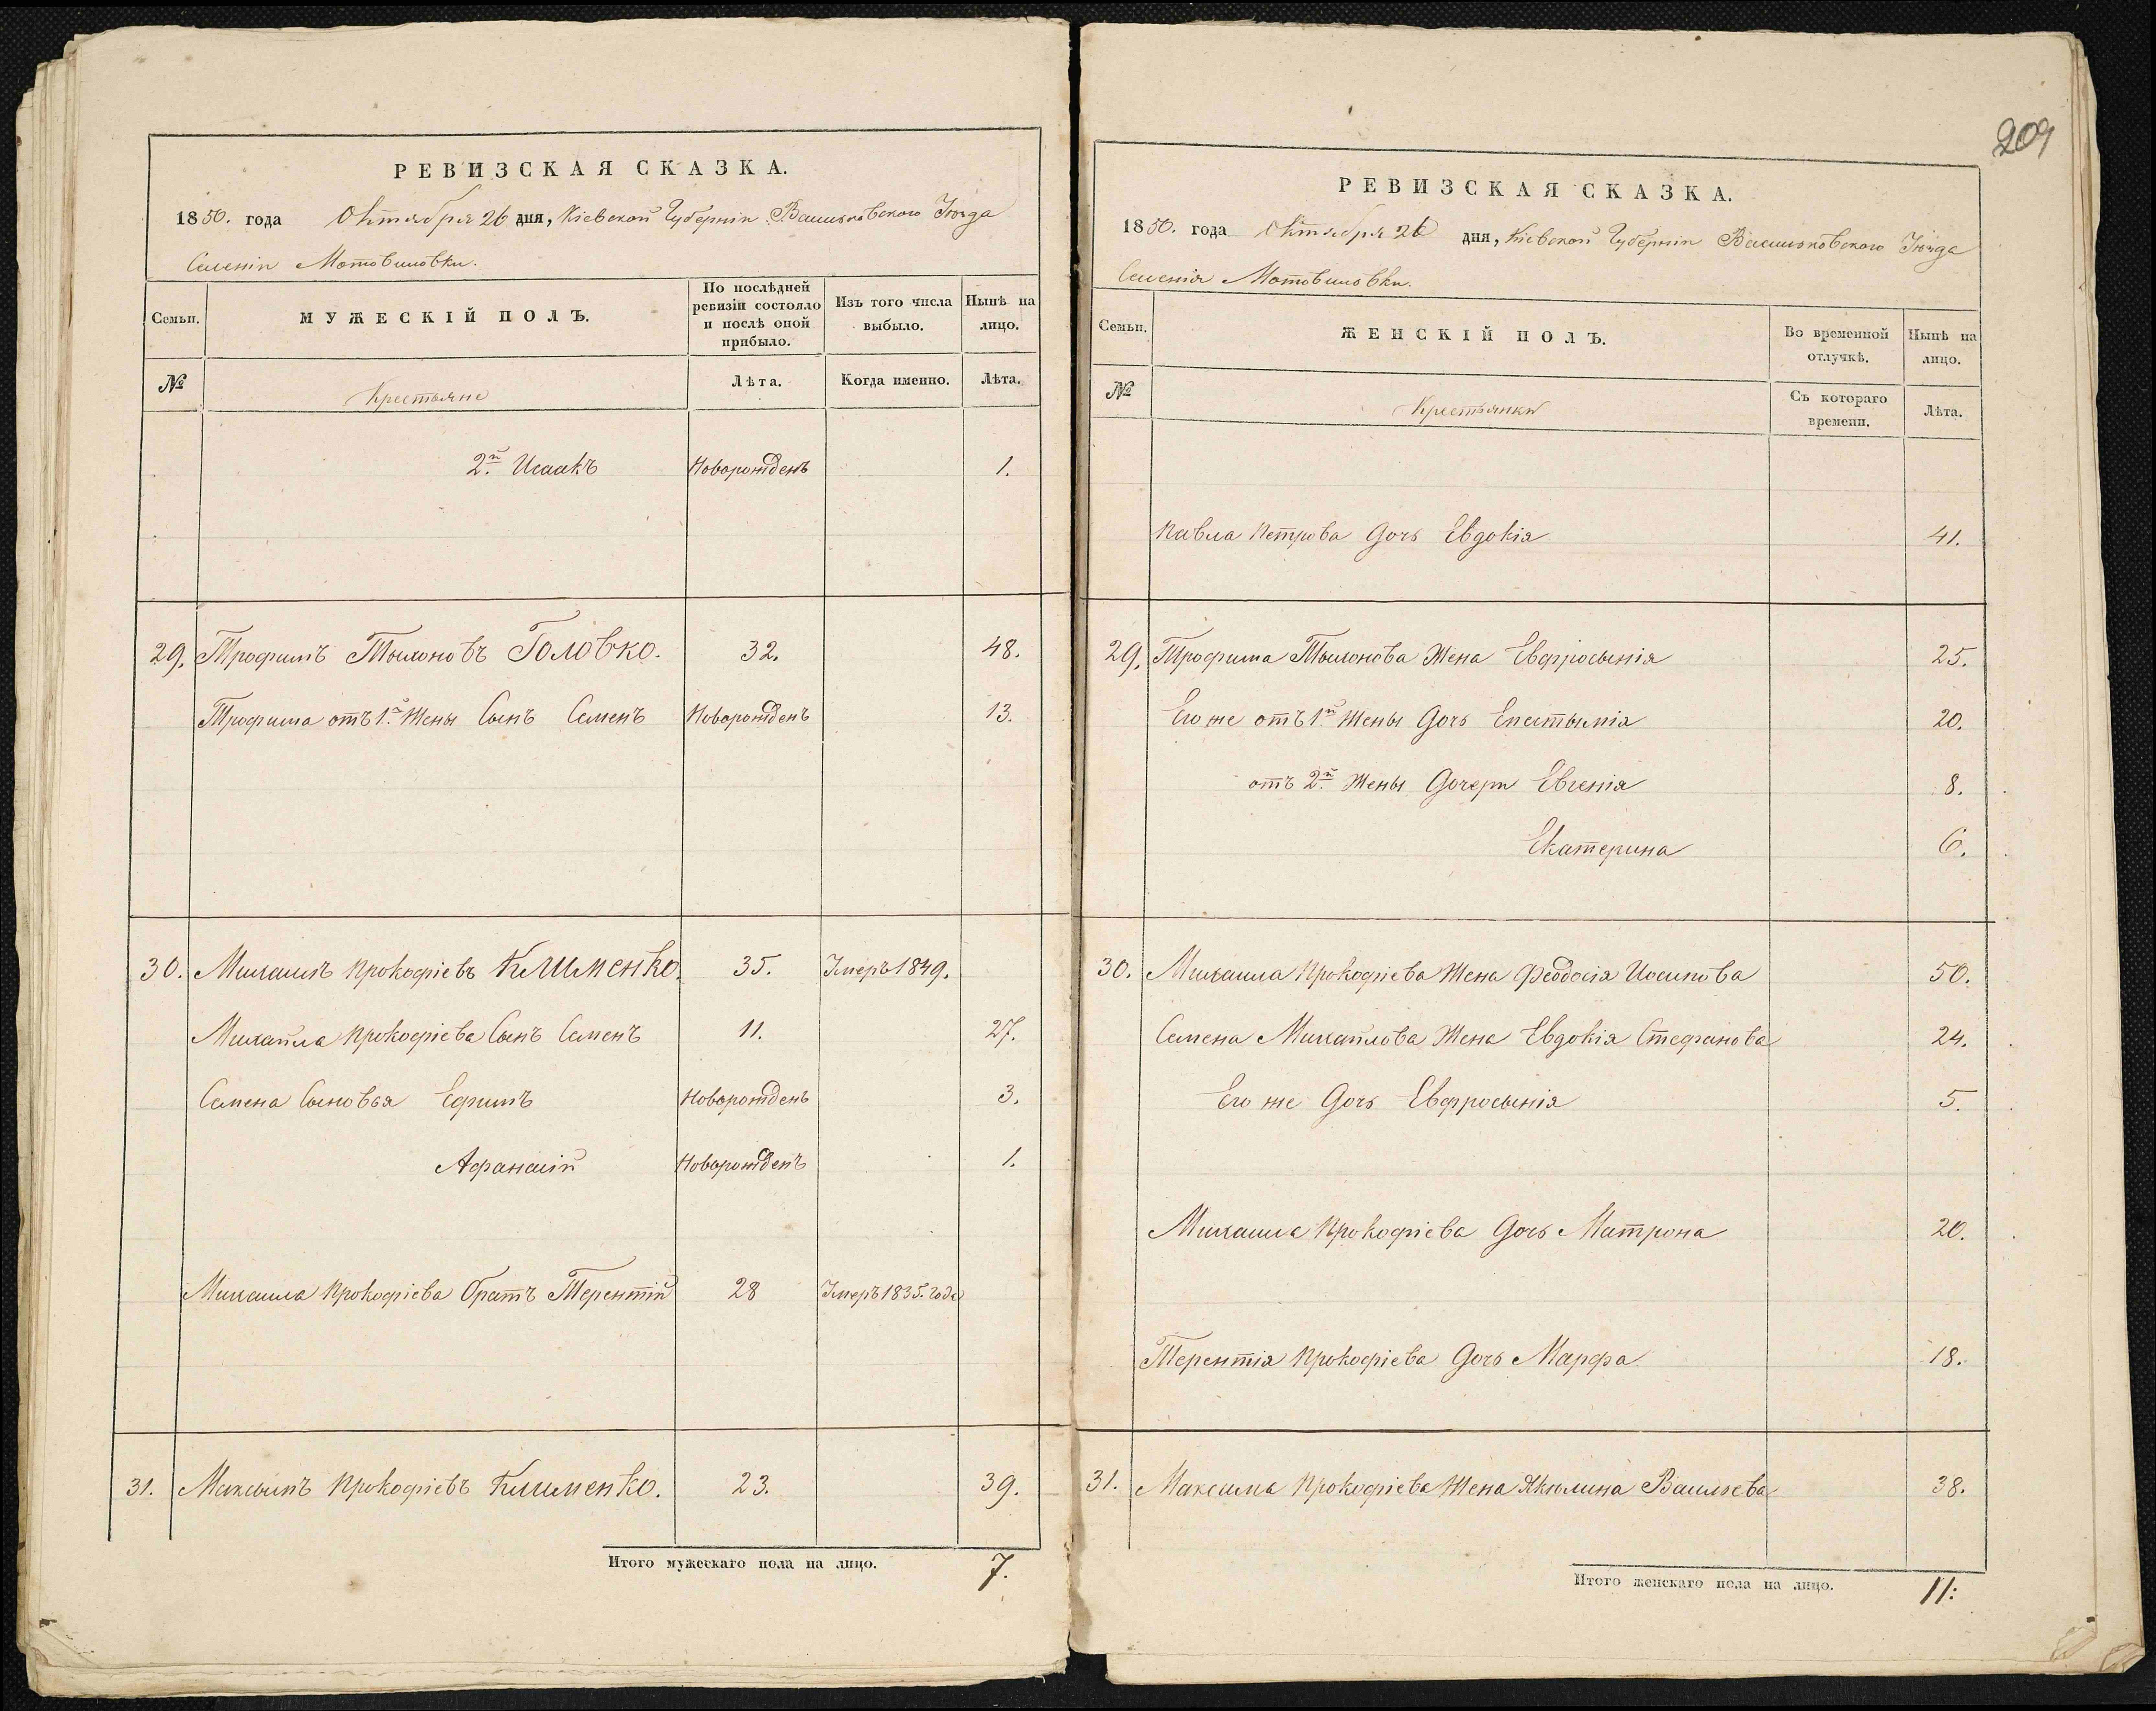 РЕВИЗСКАЯ СКАЗКА.
1850. года Октября 26 дня, Кіевской Губерніи Васильковского Уѣзда
Селенія Мотовиловки.
Семьи.
МУЖЕСКІЙ ПОЛЪ.
По послѣдней ревизіи состояло и послѣ оной прибыло.
Изъ того числа выбыло.
Нынѣ на лицо.
№
Крестьяне
Лѣта.
Когда именно.
Лѣта.
2й. Исаакъ Новорожденъ 1.
29. Трофимъ Тымоновъ Головко. 32. 48.
Трофима отъ 1й Жены Сынъ Семенъ Новорожденъ 13.
30. Михаилъ Прокофіевъ Клименко. 35. Умеръ 1849.
Михаила Прокофіева Сынъ Семенъ 11. 27.
Семена Сыновья Ефимъ Новорожденъ 3.
Афанасій Новорожденъ 1.
Михаила Прокофіева Братъ Терентій 28 Умеръ 1835. года
31. Максимъ Прокофіевъ Клименко. 23. 39.
Итого мужескаго пола на лицо. 7.
209
РЕВИЗСКАЯ СКАЗКА.
1850. года Октября 26 дня, Кіевской Губерніи Васильковского Уѣзда
Селенія Мотовиловки.
Семьи.
ЖЕНСКІЙ ПОЛЪ.
Во временной отлучкѣ.
Нынѣ на лицо.
№
Крестьянки
Съ котораго времени.
Лѣта.
Павла Петрова Дочь Евдокія 41.
29. Трофима Тымонова Жена Евфросынія 25.
Его же отъ 1й Жены Дочь Епистымія 20.
отъ 2й Жены Дочери Евгенія 8.
Екатерина 6.
30. Михаила Прокофіева Жена Феодосія Иосипова 50.
Семена Михайлова Жена Евдокія Стефанова 24.
Его же Дочь Евфросынія 5.
Михаила Прокофіева Дочь Матрона 20.
Терентія Прокофіева Дочь Марфа 18.
31. Максима Прокофіева Жена Якилина Васильева 38.
Итого женскаго пола на лицо. 11: